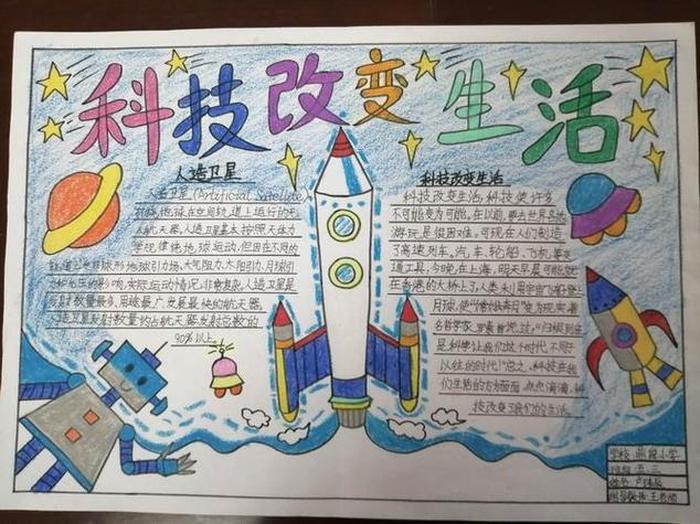 科技改变生活
人造卫星
人造卫星(Artificial Satellite)
环绕地球在空间轨道上运行的无
人航天器。人造卫星基本按照天体力
学规律绕地球运动,但因在不同的
轨道上受非球形地球引力场、大气阻力、太阳引力、月球引
力和光压的影响,实际运动情况非常复杂。人造卫星是
发射数量最多、用途最广、发展最快的航天器。
人造卫星发射数量约占航天器发射总数的
90%以上。
科技改变生活
科技改变生活,科技使许多
不可能变为可能,在以前,要去世界各地
游玩是很困难,可现在人们制造
了高速列车,汽车,轮船,飞机等交
通工具,今晚在上海,明天早晨可能就
在香港的大桥上了,人类利用宇宙飞船登上
月球,使“嫦娥奔月”变为现实,著
名哲学家罗素曾说过,“归根到底
是科学让我们这个时代不同于
以往的时代!”总之,科技在我
们生活的方方面面,点点滴滴,科
技改变了我们的生活。
学校:小学
班级:五.三
姓名:卢
指导教师:王